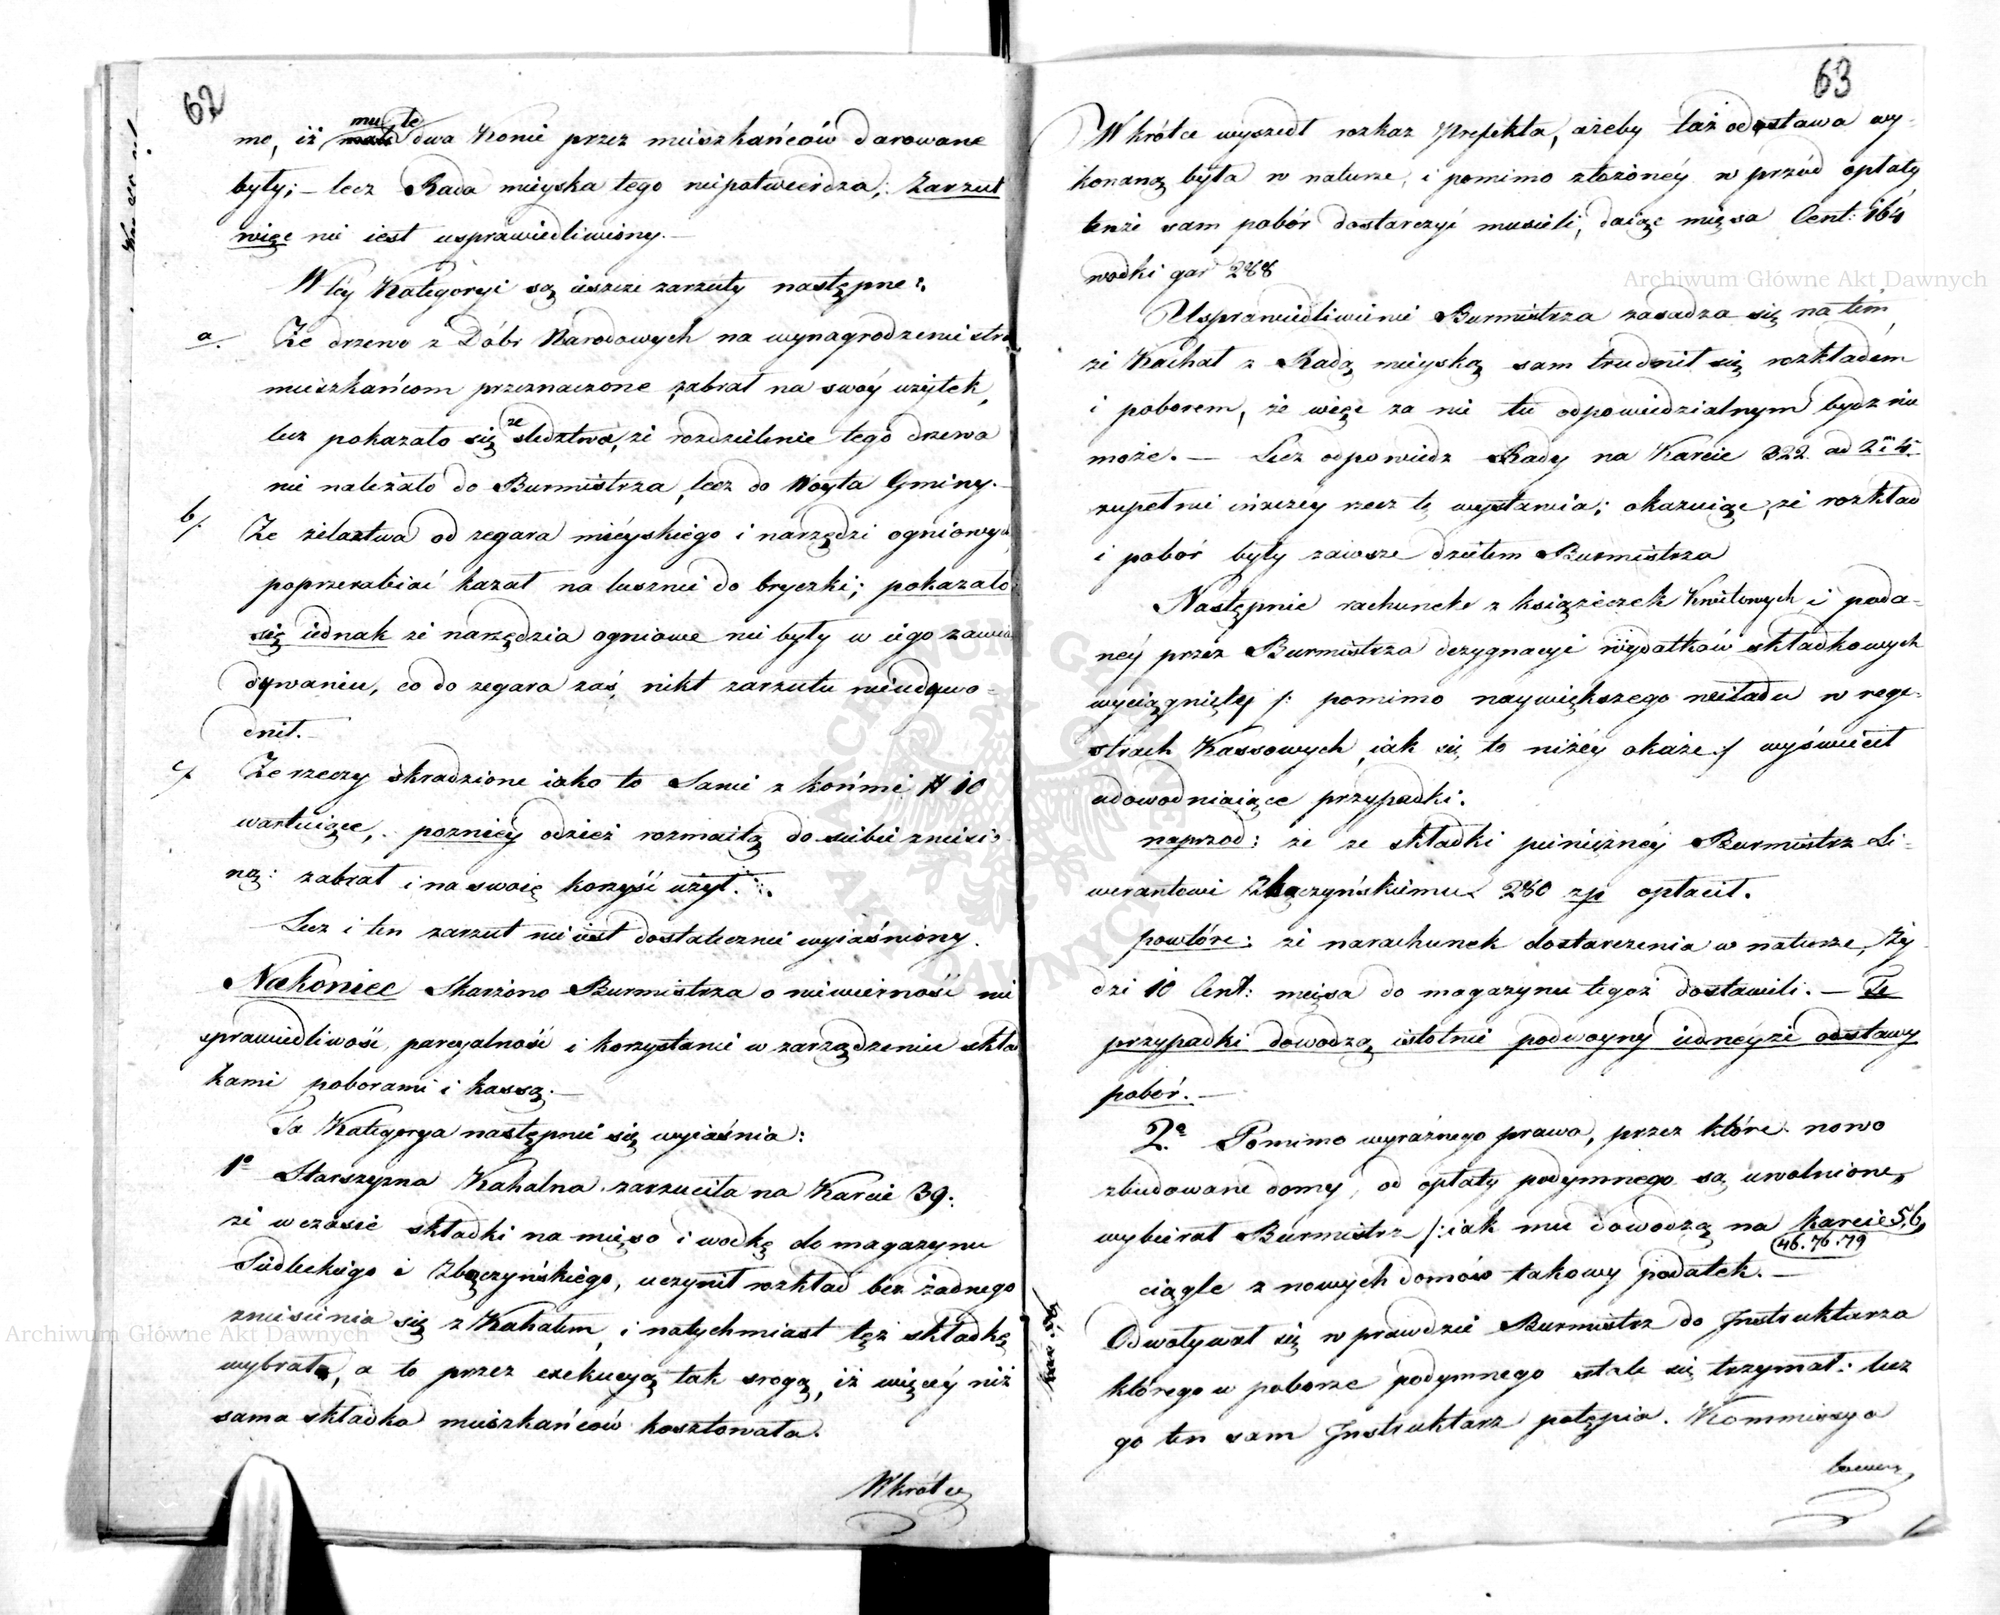 62
mu te
mo, iż dwa konie przez mieszkańców darowane
były; – lecz Rada mieyska tego niepotwierdza; Zarzut
więc nie iest usprawiedliwiony. –
W tey Kategoryi są ieszcze zarzuty następne:
a. Ze drzewo z Dóbr Narodowych na wynagrodzenie stra
mieszkańcom przeznaczone zabrał na swóy użytek,
lecz pokazało się ze śledztwa, że rozdzielenie tego drzewa
nie należało do Burmistrza, lecz do Woyta Gminy. –
b/. Ze żelaztwa od zegara mieyskiego i narzędzi ogniowych
poprzerabiać kazał na lusznie do bryczki; pokazało
się iednak że narzędzia ogniowe nie były w iego zawia
dywaniu, co do zegara zaś, nikt zarzutu nieudowo-
dnił. –
c/. Ze rzeczy skradzione iako to Sanie z końmi # 10
wartuiące, poznicy odzież rozmaitą do siebie zniesio-
ną: zabrał i na swoię korzyść użył.
Lecz i ten zarzut nie iest dostatecznie wyiaśniony.
Nakoniec Skarżono Burmistrza o niewierność nie
sprawiedliwość, parcyalność i korzystanie w zarządzeniu skła
kami poborami i kassą. –
Ta Kategorya następnie się wyiaśnia:
1º Starszyzna Kahalna zarzuciła na Karcie 39.
że w czasie składki na mięso i wodkę do magazynu
Siedleckiego i Zbączyńskiego, uczynił rozkład bez żadnego
zniesienia się z Kahałem, i natychmiast tęż składkę
wybrał, a to przez exekucyą tak srogą, iż więcéy niż
sama składka mieszkańców kosztowała.
Wkrótce
63
Wkrótce wyszedł rozkaz Prefekta, ażeby taż odstawa wy-
konaną była w naturze, i pomimo złożonéy w przód opłaty
tenże sam pobór dostarczyć musieli, daiąc mięsa Cent: 164
wodki gar 288
Usprawiedliwienie Burmistrza zasadza się na tém,
że Kachał z Radą mieyską sam trudnił się rozkładem
i poborem, że więc za nie tu odpowiedzialnym bydz nie
może. – Lecz odpowiedz Rady na Karcie 322 ad 2 i 4
zupełnie inszey rzecz tę wystawia; okazuiąc, że rozkład
i pobór były zawsze dziełem Burmistrza
Następnie rachunek z książeczek Kwitowych i poda-
néy przez Burmistrza dezygnacyi wydatków składkowych
wyciągnięty /: pomimo naywiększego nieładu w reje-
strach Kassowych, iak się to niżéy okaże :/ wyświecił
udowodniaiące przypadki.
naprzod: że ze składki pieniężnéy Burmistrz Li-
werantowi Zbączyńskiemu 280 zp opłacił.
powtóre: że narachunek dostarczenia w naturze, Ży
dzi 10 Cent: mięsa do magazynu tegoż dostawili. – Te
przypadki dowodzą istotnie podwoyny iednéyże odstawy
pobór. –
2º Pomimo wyraźnego prawa, przez które nowo
zbudowane domy, od opłaty podymnego są uwolnione,
wybierał Burmistrz /: iak mu dowodzą na karcie 56,
46. 76. 79
ciągle z nowych domów takowy podatek. –
Odwoływał się w prawdzie Burmistrz do Instruktarza
którego w poborze podymnego stale się trzymał: lecz
go ten sam Instruktarz potępia. Kommissya
Archiwum Główne Akt Dawnych
Archiwum Główne Akt Dawnych
ARCHIWUM GŁÓWNE AKT DAWNYCH